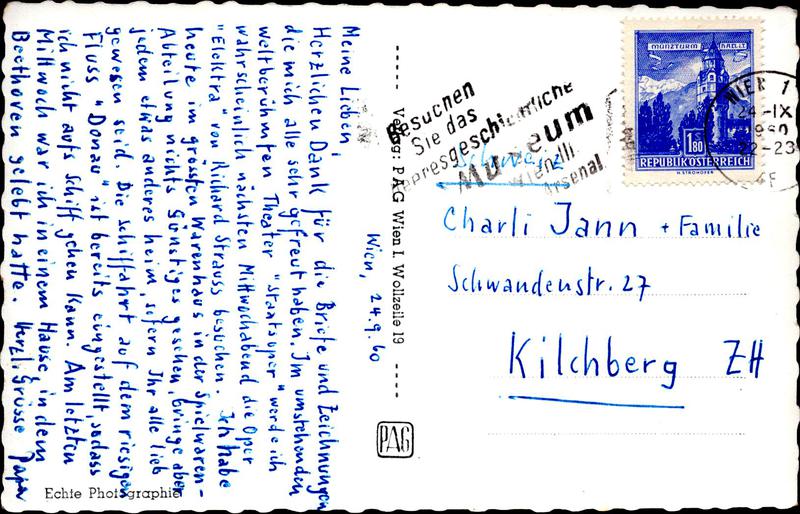 Meine Lieben,
Herzlichen Dank für die Briefe und Zeichnungen
die mich alle sehr gefreut haben. Im umstehenden
weltberühmten Theater "Staatsoper" werde ich
wahrscheinlich nächsten Mittwochabend die Oper
"Elektra" von Richard Strauss besuchen. Ich habe
heute im grössten Warenhaus in der Spielwaren-
Abteilung nichts Günstiges gesehen, bringe aber
jedem etwas anderes heim, sofern Ihr alle lieb
gewesen seid. Die Schiffahrt auf dem riesigen
Fluss "Donau" ist bereits eingestellt, sodass
ich nicht aufs Schiff gehen kann. Am letzten
Mittwoch war ich in einem Hause, in dem
Beethoven gelebt hatte. Herzl. Grüsse Papa
Wien, 24.9.60
Echte Photographie
Verlag: PAG Wien I. Wollzeile 19
PAG
Besuchen
Sie das
Heeresgeschichtliche
Museum
Wien III.
Arsenal
MÜNZTURM HALL I.T.
1.80
REPUBLIK ÖSTERREICH
H. STROHOFER
WIEN 1
24-IX
1960
22-23
Schweiz
Charli Jann + Familie
Schwandenstr. 27
Kilchberg ZH